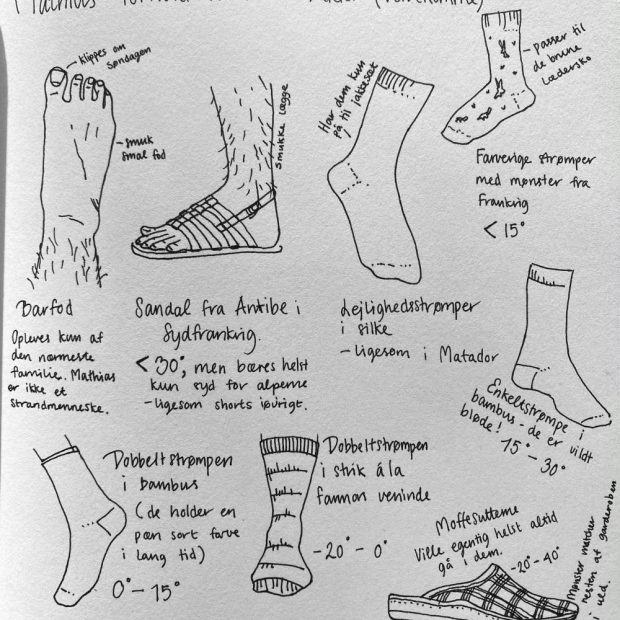 Mathias'
(
klippes om
søndagen
smuk
smal fod
Barfod
Opleves kun af
den nærmeste
familie. Mathias
er ikke et
strandmenneske.
smukke lægge
Sandal fra Antibe i
Sydfrankrig.
< 30°, men bæres helst
kun syd for alperne
- ligesom shorts iøvrigt.
Har dem kun
på til jakkesæt
Lejlighedsstrømper
i silke
- Ligesom i Matador
- passer til
de brune
lædersko
Farverige strømper
med mønster fra
Frankrig
< 15°
Enkeltstrømpe i
bambus - de er vildt
bløde!
15° - 30°
Dobbeltstrømpen
i bambus
(de holder en
pæn sort farve
i lang tid)
0° - 15°
Dobbeltstrømpen
i strik á la
fannan veninde
-20° - 0°
Moffesutterne
Ville egentig helst altid
gå i dem.
-20° - 40°
Mønster matcher
resten af garderoben
i uld.